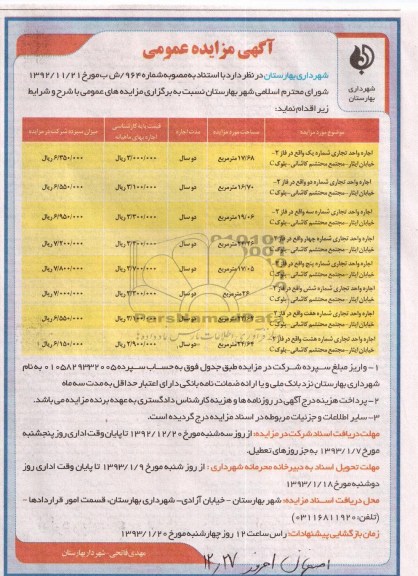 آگهی مزایده عمومی
شهرداری
بهارستان
شهرداری بهارستان در نظر دارد با استناد به مصوبه شماره ۹۶۴/ش ب مورخ ۱۳۹۲/۱۱/۲۱
شورای محترم اسلامی شهر بهارستان نسبت به برگزاری مزایده های عمومی با شرح و شرایط
زیر اقدام نماید:
موضوع مورد مزایده مساحت مورد مزایده مدت اجاره قیمت پایه کارشناسی اجاره بهای ماهیانه میزان سپرده شرکت در مزایده
اجاره واحد تجاری شماره یک واقع در فاز ۲- خیابان ایثار-مجتمع محتشم کاشانی-بلوک C ۱۷/۶۸ مترمربع دو سال ۳/۰۰۰/۰۰۰ ریال ۶/۳۵۰/۰۰۰ ریال
اجاره واحد تجاری شماره دو واقع در فاز ۲- خیابان ایثار-مجتمع محتشم کاشانی-بلوک C ۱۶/۷۰ مترمربع دو سال ۳/۱۰۰/۰۰۰ ریال ۶/۵۵۰/۰۰۰ ریال
اجاره واحد تجاری شماره سه واقع در فاز ۲- خیابان ایثار-مجتمع محتشم کاشانی-بلوک C ۱۹/۰۶ مترمربع دو سال ۳/۳۰۰/۰۰۰ ریال ۶/۹۵۰/۰۰۰ ریال
اجاره واحد تجاری شماره چهار واقع در فاز ۲- خیابان ایثار-مجتمع محتشم کاشانی-بلوک C مترمربع دو سال ۳/۴۰۰/۰۰۰ ریال ۷/۲۰۰/۰۰۰ ریال
اجاره واحد تجاری شماره پنج واقع در فاز ۲- خیابان ایثار-مجتمع محتشم کاشانی-بلوک C ۱۷/۰۵ مترمربع دو سال ۳/۷۰۰/۰۰۰ ریال ۷/۸۰۰/۰۰۰ ریال
اجاره واحد تجاری شماره شش واقع در فاز ۲- خیابان ایثار-مجتمع محتشم کاشانی-بلوک C ۲۶ مترمربع دو سال ۳/۳۰۰/۰۰۰ ریال ۷/۰۰۰/۰۰۰ ریال
اجاره واحد تجاری شماره هفت واقع در فاز ۲- خیابان ایثار-مجتمع محتشم کاشانی-بلوک C مترمربع دو سال ریال ۶/۵۵۰/۰۰۰ ریال
اجاره واحد تجاری شماره هشت واقع در فاز ۲- خیابان ایثار-مجتمع محتشم کاشانی-بلوک C ۲۲/۶۴ مترمربع دو سال ۲/۹۰۰/۰۰۰ ریال ۶/۱۵۰/۰۰۰ ریال
۱- واریز مبلغ سپرده شرکت در مزایده طبق جدول فوق به حساب سپرده ۰۱۰۵۸۲۹۳۳۲۰۰۵ به نام
شهرداری بهارستان نزد بانک ملی و یا ارائه ضمانت نامه بانکی دارای اعتبار حداقل به مدت سه ماه
۲- پرداخت هزینه درج آگهی در روزنامه ها و هزینه کارشناس دادگستری به عهده برنده مزایده می باشد.
۳- سایر اطلاعات و جزئیات مربوطه در اسناد مزایده درج گردیده است.
مهلت دریافت اسناد شرکت در مزایده: از روز سه شنبه مورخ ۱۳۹۲/۱۲/۲۰ تا پایان وقت اداری روز پنجشنبه
مورخ ۱۳۹۳/۱/۷ به جز روزهای تعطیل.
مهلت تحویل اسناد به دبیرخانه محرمانه شهرداری : از روز شنبه مورخ ۱۳۹۳/۱/۹ تا پایان وقت اداری روز
دوشنبه مورخ ۱۳۹۳/۱/۱۸
محل دریافت اسناد مزایده: شهر بهارستان - خیابان آزادی- شهرداری بهارستان، قسمت امور قراردادها -
(تلفن: ۰۳۱۱۶۸۱۱۹۲۰)
زمان بازگشایی پیشنهادات: راس ساعت ۱۲ روز چهارشنبه مورخ ۱۳۹۳/۱/۲۰
مهدی فاتحی- شهردار بهارستان
اصفهان امروز ۱۲,۲۷